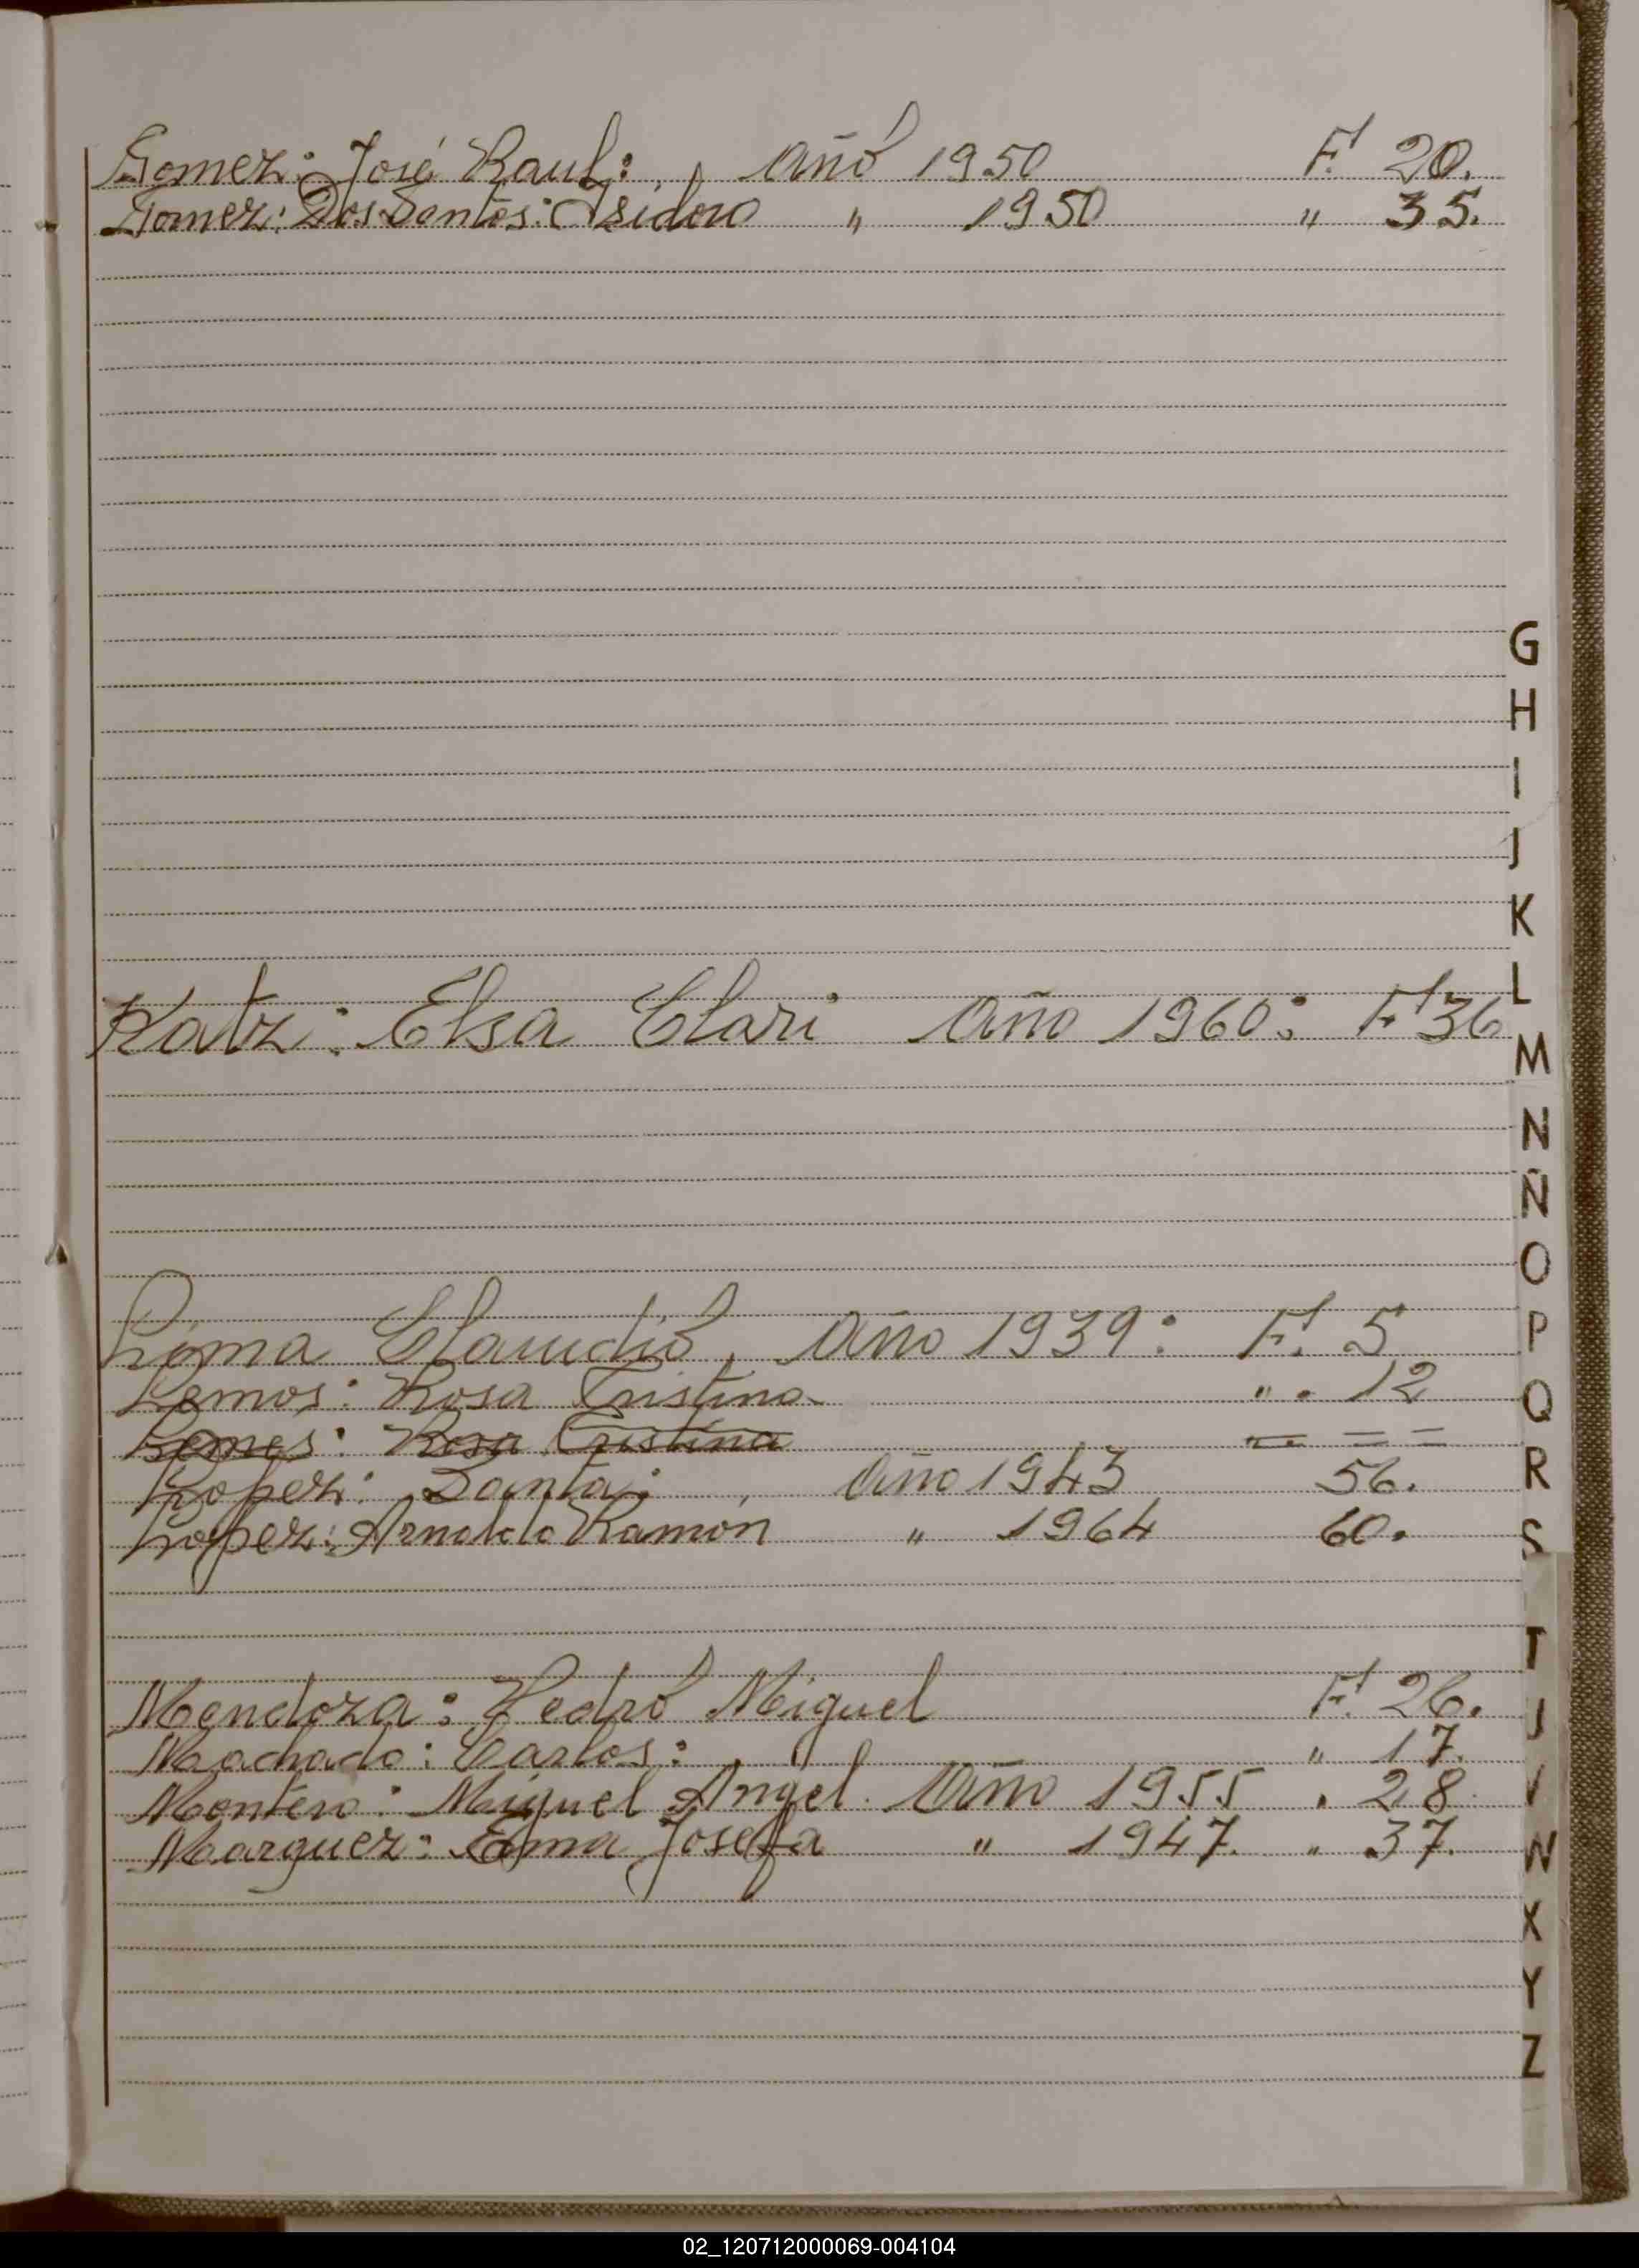 Gomez: José Raul: Año 1950 F. 20.
Gomez: Dos Santos: Isidoro " 1950 " 35.
Katz: Elsa Clari Año 1960: F 36
Lima Claudio, Año 1939: F. 5
Lemos: Rosa Cristina " . 12
Lemos: Rosa Cristina
Lopez: Santa: Año 1943 56.
Lopez: Arnoldo Ramón " 1964 60.
Mendoza: Pedro Miguel F. 26.
Machado: Carlos: " 17.
Montero: Miguel Angel. Año 1955 . 28.
Marquez: Ema Josefa " 1947. " 37.
G
H
I
J
K
L
M
N
Ñ
O
P
Q
R
S
T
U
V
W
X
Y
Z
02_120712000069-004104